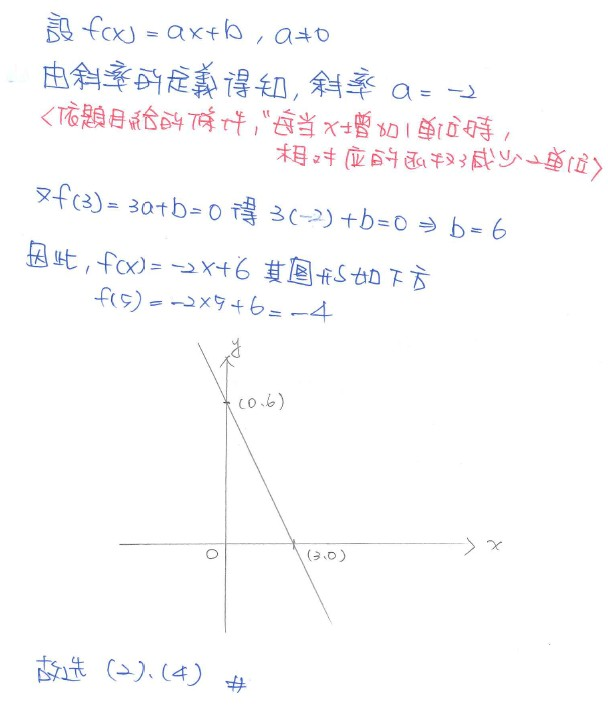 設 f(x) = ax+b , a≠0
由斜率的定義得知, 斜率 a = -2
<依題目給的條件,"每當 x 增加 1 單位時,
相对应的函数減少 2 單位>
又f(3) = 3a+b=0 得 3(-2)+b=0 ⇒ b=6
因此, f(x) = -2x+6 其圖形如下方
f(5) = -2×5+6 = -4
y
(0.6)
0
(3.0)
x
故选 (2)、(4) #